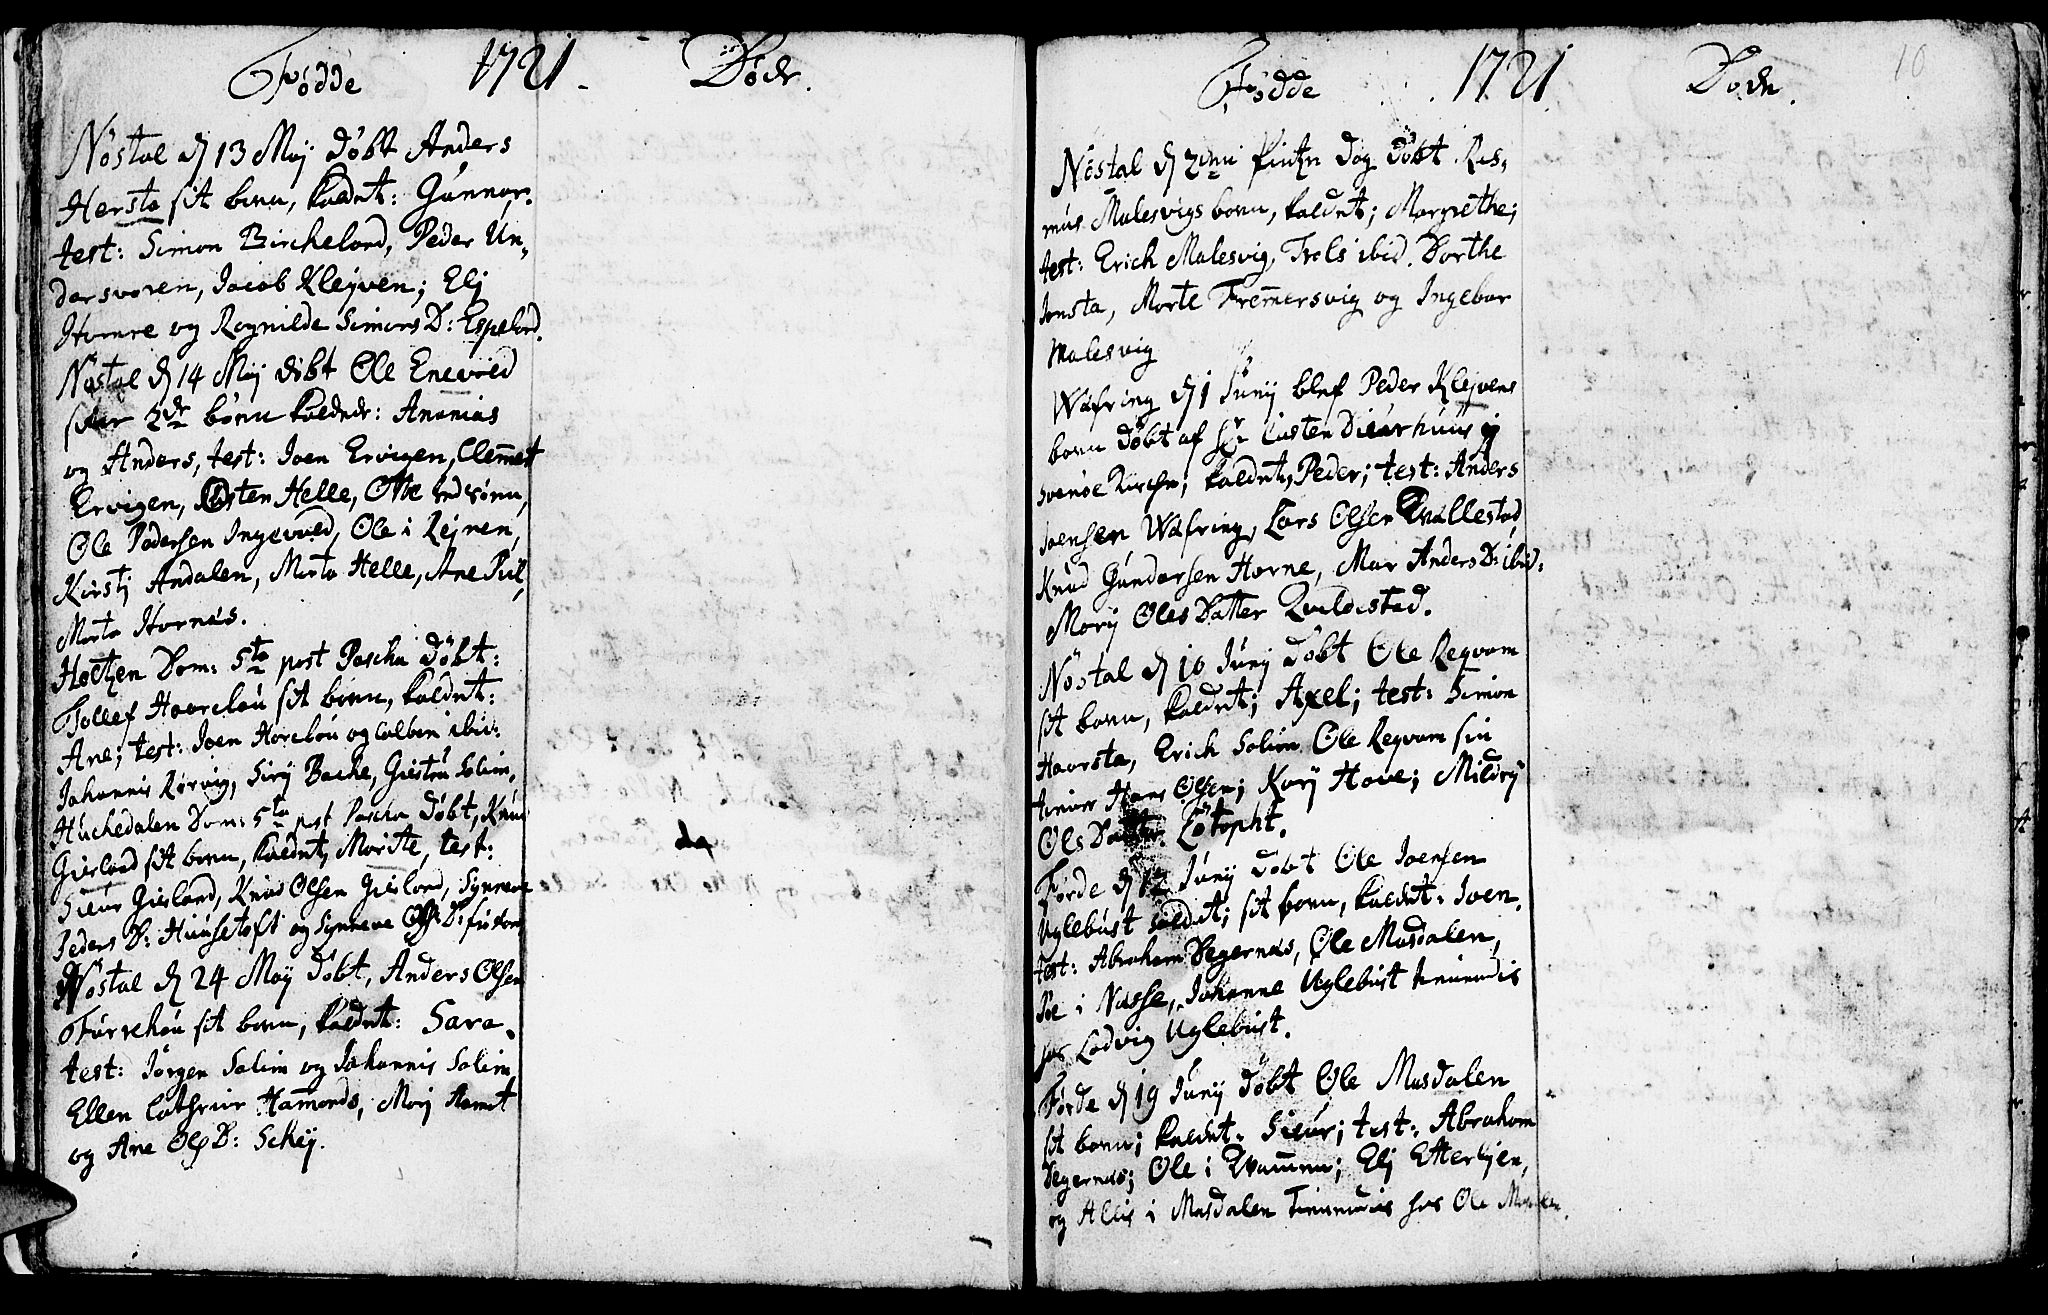 Fødde 1721. Døde.
Nøstal d 13 Maj døbt Anders
Hersta sit barn, kaldet: Gunnor.
test: Simon Birchelord, Peder Un-
darsvoren, Jacob Klejven; Elj
Hornre og Rognilde Simons D: Espelord.
Nøstal d 14 Maj døbt Ole Enevold
2de børn kaldede: Ananias
og Anders, test: Joen Ervigen, Clemmet
Ervigen, Østen Helle, Otte
Ole Pedersen Ingevold, Ole i Rejnen,
Kirstj Andalen, Merta Helle, Ane Piil,
Morta Hornes.
Holtzen Dom: 5ta post Pascha døbt:
Tollef Hoorelou sit barn, kaldet:
Ane; test: Joen Horelou og Colben ibid:
Johannis Rørvig, Sirj Backe, Giestru Solim,
Huchedalen Dom: 5ta post Pascha døbt, Knud
Gierlord sit barn, kaldet, Morite, test:
Siur Gierlord, Knud Olsen Gierlord, Synneve
Peders D: Huusetoft og Synneve Ols D:
Nøstal d 24 Maj døbt, Anders Olsen
Furrehou sit barn, kaldet: Sara.
test: Jørgen Solim og Johannis Solim
Ellen Cathrine Hammonds, Marj
og Ane Ols D: Schej.
da
Fødde 1721 Døde. 10
Nøstal d 2den Pintze dag døbt Ras-
mus Malesvigs barn, kaldet; Margrethe;
test: Erich Malesvig, Trols ibid. Dorthe
Jonsta, Morte Fremmersvig og Ingebor
Malesvig
Wæfring d 1 Junj blef Peder Klejvens
barn døbt af Hr Casten i
Svenøe Kirche, kaldet, Peder; test: Anders
Joensen Wæfring, Lars Olsen Qvallestad,
Knud Gundersen Horne, Mar Anders D: ibid:
Marj Oles Datter Qvaldestad.
Nøstal d 10 Junj døbt Ole Reqvam
sit barn, kaldet; Axel; test: Simon
Hoorsta, Erich Solim Ole Reqvam sin
tiener Hans Olsen; Karj Hove; Mildrj
Ols Datter Løtopht.
Førde d 12 Junj døbt Ole Joensen
Uglebust soldat; sit barn, kaldet: Joen.
test: Abraham Degernæs, Ole Masdalen,
Joe i Nasse, Johanne Uglebust tienendis
hos Lodvig Uglebust.
Førde d 19 Junj døbt Ole Masdalen
sit barn; kaldet. Siur; test: Abraham
Degernæs; Ole i Qvammen; Elj Etterlien,
og Allis i Masdalen tienendis hos Ole